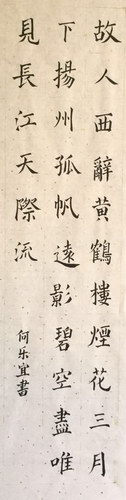 故人西辭黄鶴樓煙花三月
下揚州孤帆遠影碧空盡唯
見長江天際流
何乐宜書